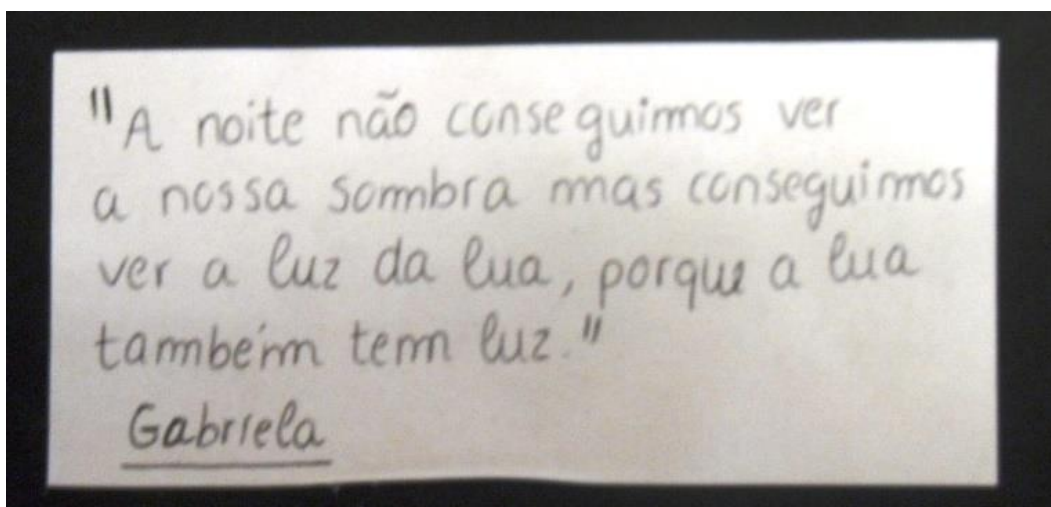 "A noite não conseguimos ver
a nossa sombra mas conseguimos
ver a luz da lua, porque a lua
também tem luz."
Gabriela